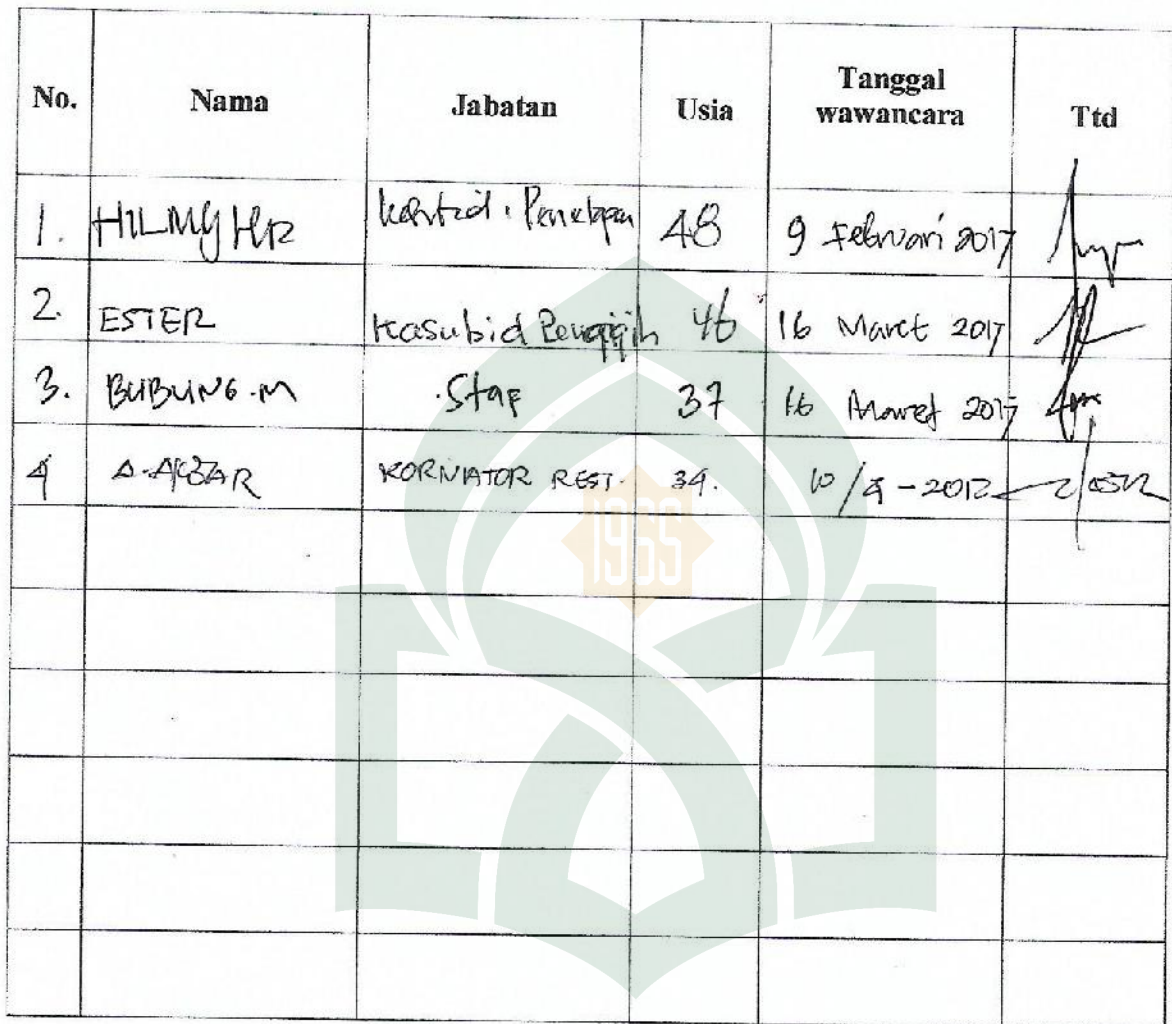 No. Nama Jabatan Usia Tanggal wawancara Ttd
1. HILMY HR Penetapan 48 9 Februari 2017
2. ESTER Kasubid Penagih 46 16 Maret 2017
3. BUBUNG .M Staf 37 16 Maret 2017
4 A. AKBAR KORNIATOR REST. 34.
1965